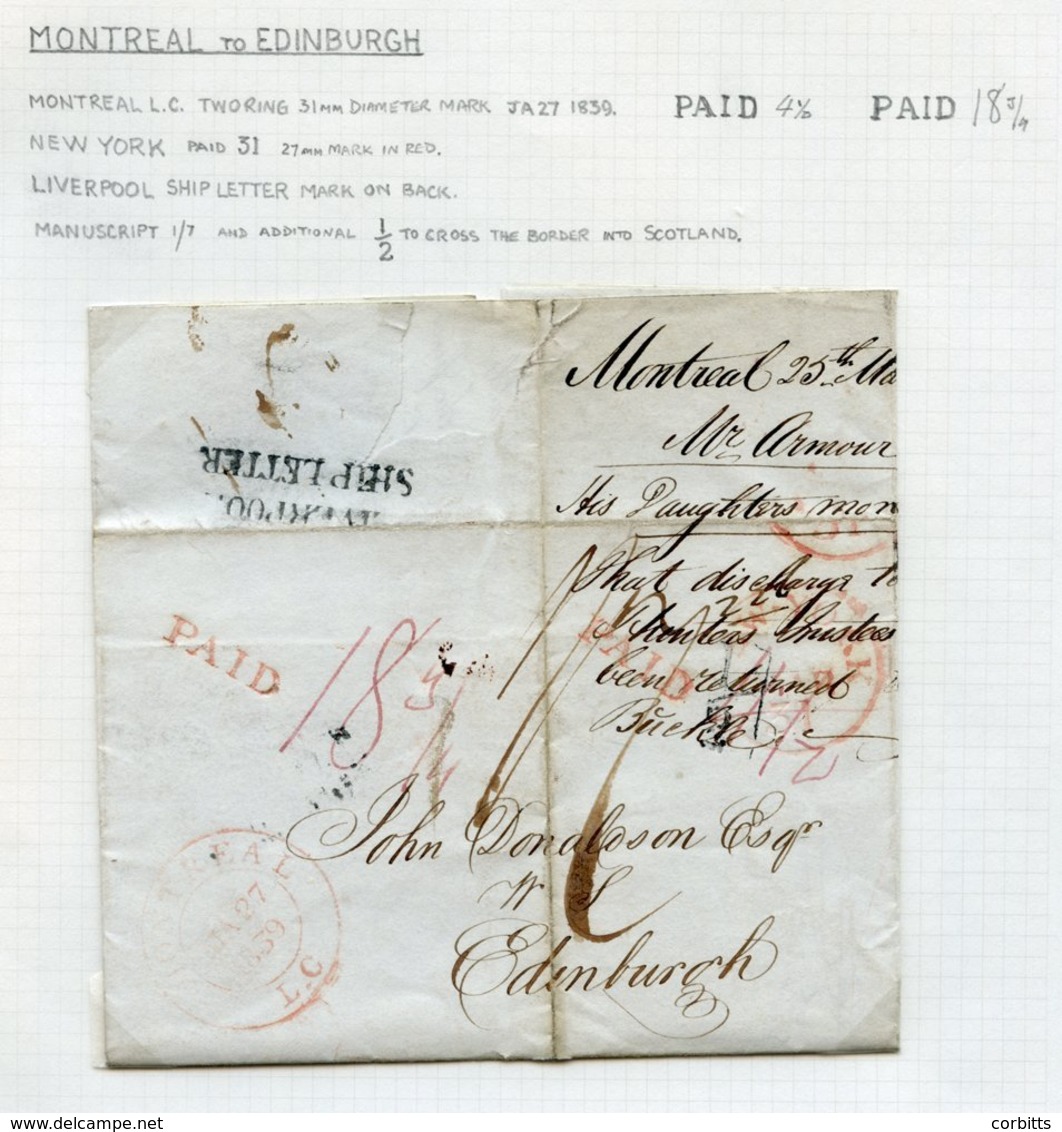 MONTREAL TO EDINBURGH
MONTREAL L.C. TWO RING 31MM DIAMETER MARK JA 27 1839. PAID 4½ PAID 18¾
NEW YORK PAID 31 27MM MARK IN RED.
LIVERPOOL SHIP LETTER MARK ON BACK.
MANUSCRIPT 1/7 AND ADDITIONAL 1/2 TO CROSS THE BORDER INTO SCOTLAND.
Montreal 25th Ma
Mr. Armour
His Daughters mon
SHIP LETTER
that discharge to
Hunters trustees
been returned
Buckle
PAID
18 3/4
PAID
John Donaldson Esqr
W S
Edinburgh
MONTREAL
JA 27
1839
L.C
delcampe.net
corbitts